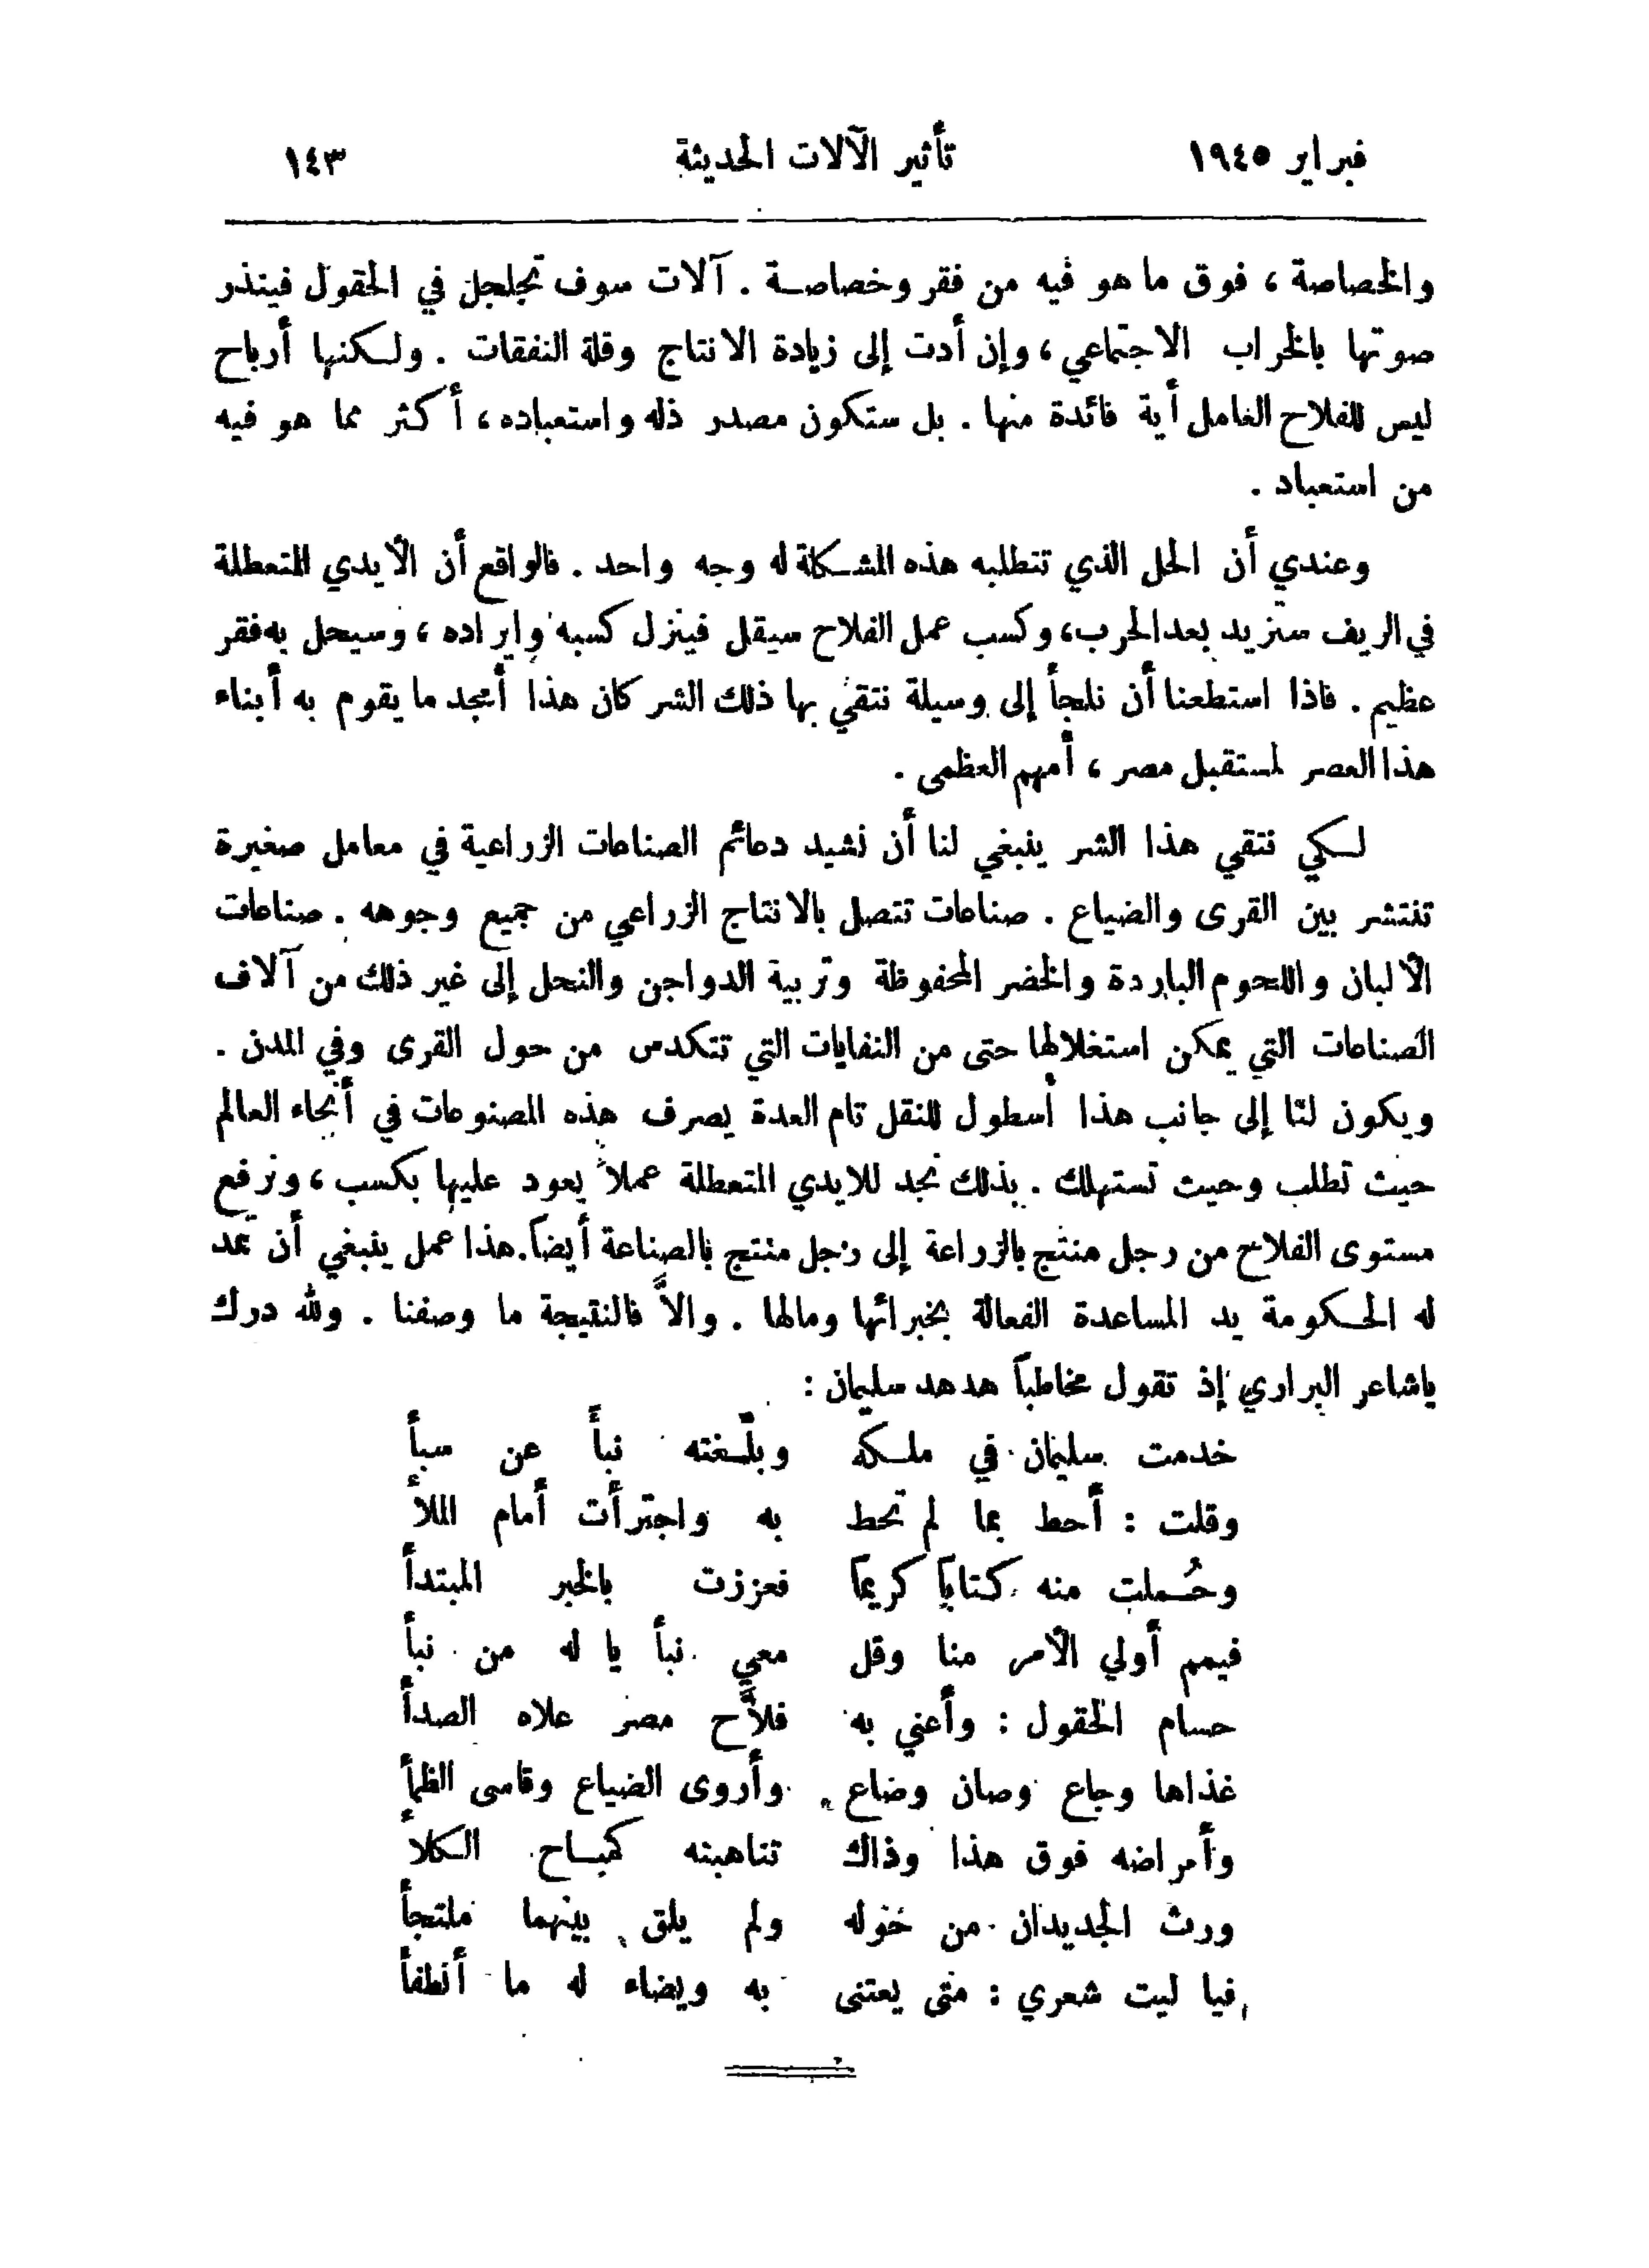 فبراير ١٩٤٥ تأثير الآلات الحديثة ١٤٣
والخصاصة ، فوق ما هو فيه من فقر وخصاصة . آلات سوف تجلجل في الحقول فينذر
صوتها بالخراب الاجتماعي ، وإن أدت إلى زيادة الانتاج وقلة النفقات . ولكنها أرباح
ليس للفلاح العامل أية فائدة منها . بل ستكون مصدر ذله واستعباده ، أكثر مما هو فيه
من استعباد .
وعندي أن الحل الذي تتطلبه هذه المشكلة له وجه واحد . فالواقع أن الأيدي المتعطلة
في الريف ستزيد بعد الحرب ، وكسب عمل الفلاح سيقل فينزل كسبه وإيراده ، وسيحل به فقر
عظيم . فاذا استطعنا أن نلجأ إلى وسيلة نتقي بها ذلك الشر كان هذا أمجد ما يقوم به أبناء
هذا العصر لمستقبل مصر ، أمهم العظمى .
لكي نتقي هذا الشر ينبغي لنا أن نشيد دعائم الصناعات الزراعية في معامل صغيرة
تنتشر بين القرى والضياع . صناعات تتصل بالانتاج الزراعي من جميع وجوهه . صناعات
الألبان واللحوم الباردة والخضر المحفوظة وتربية الدواجن والنحل إلى غير ذلك من آلاف
الصناعات التي يمكن استغلالها حتى من النفايات التي تتكدس من حول القرى وفي المدن .
ويكون لنا إلى جانب هذا أسطول للنقل تام العدة يصرف هذه المصنوعات في أنحاء العالم
حيث تطلب وحيث تستهلك . بذلك نجد للايدي المتعطلة عملاً يعود عليها بكسب ، ونرفع
مستوى الفلاح من رجل منتج بالزراعة إلى رجل منتج بالصناعة أيضاً . هذا عمل ينبغي أن تمد
له الحكومة يد المساعدة الفعالة بخبرائها ومالها . والاَّ فالنتيجة ما وصفنا . ولله درك
ياشاعر البراري إذ تقول مخاطباً هدهد سليمان :
خدمت سليمان في ملكه وبلَّغته نبأً عن سبأ
وقلت : أحط بما لم تحط به واجترأت أمام الملأ
وحُملت منه كتاباً كريماً فعززت بالخبر المبتدأ
فيمم أولي الأمر منا وقل معي نبأ يا له من نبأ
حسام الحقول : وأعني به فلاَّح مصر علاه الصدأ
غذاها وجاع وصان وضاع وأروى الضياع وقاسى الظمأ
وأمراضه فوق هذا وذاك تناهبنه كمباح الكلأ
ورث الجديدان من حوله ولم يلق بينهما ملتجأ
فيا ليت شعري : متى يعتنى به ويضاء له ما أنطفأ